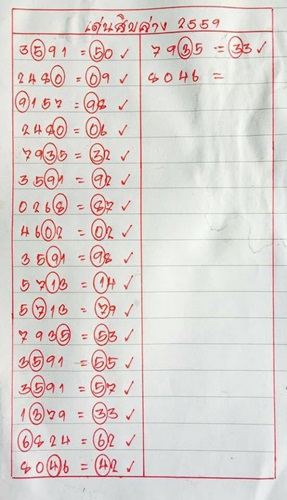 เด่นสิบล่าง 2559
3591 = 50 ✓
2480 = 09 ✓
9157 = 98 ✓
2480 = 06 ✓
7935 = 32 ✓
3591 = 92 ✓
0268 = 87 ✓
4602 = 02 ✓
3591 = 98 ✓
5713 = 14 ✓
5713 = 79 ✓
7935 = 53 ✓
3591 = 55 ✓
3591 = 57 ✓
1379 = 33 ✓
6824 = 62 ✓
8046 = 42 ✓
7935 = 33 ✓
8046 =